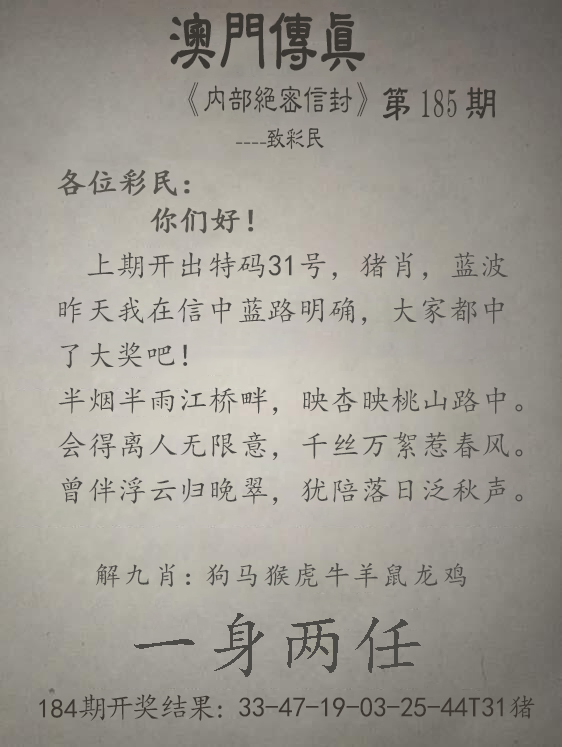 澳門傳真
《内部絕密信封》第185期
----致彩民
各位彩民：
你们好！
上期开出特码31号，猪肖，蓝波
昨天我在信中蓝路明确，大家都中
了大奖吧！
半烟半雨江桥畔，映杏映桃山路中。
会得离人无限意，千丝万絮惹春风。
曾伴浮云归晚翠，犹陪落日泛秋声。
解九肖：狗马猴虎牛羊鼠龙鸡
一身两任
184期开奖结果：33-47-19-03-25-44T31猪